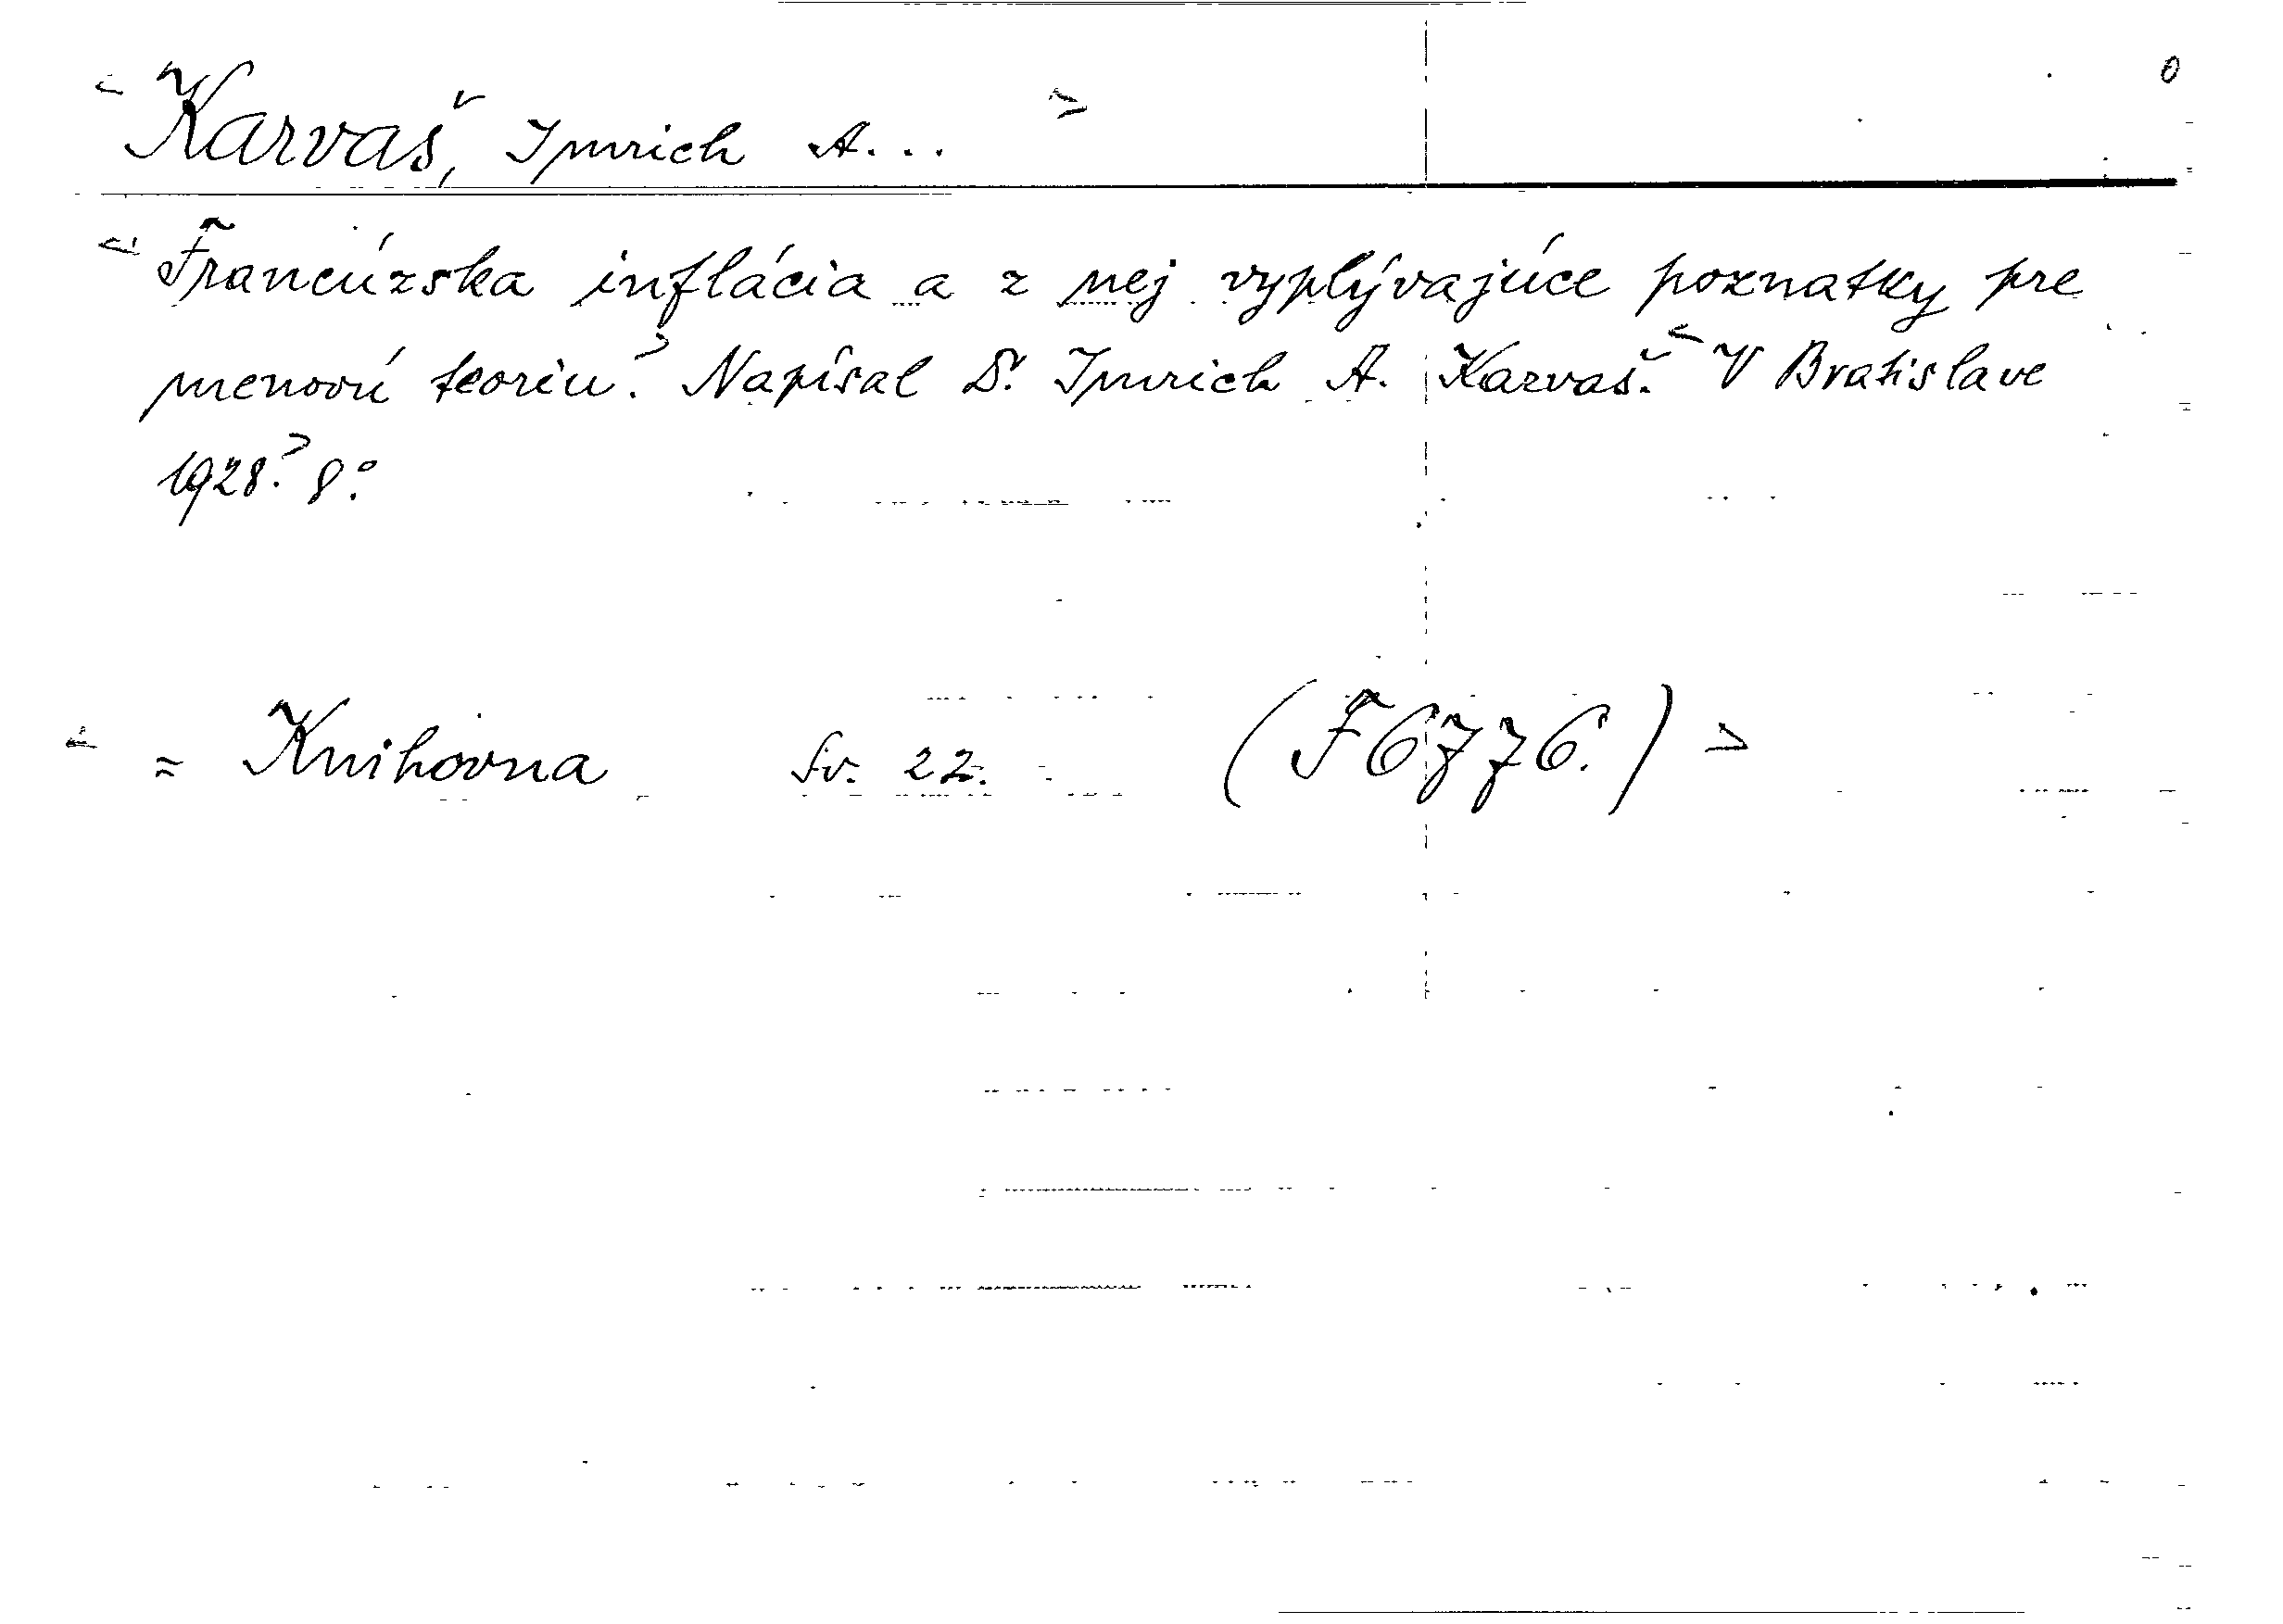 < Karvaš, Imrich A... > 0
< Francúzska inflácia a z nej vyplývajúce poznatky pre
menovú teoriu.> Napísal Dr. Imrich A. Karvaš. < V Bratislave
1928.> 8°.
< = Knihovna Sv. 22. (F6776.) >